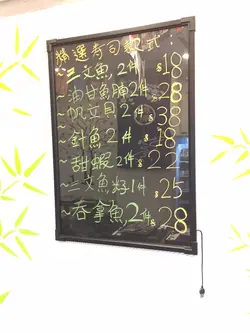 精選壽司款式:
~三文魚 2件 $18
~油甘魚腩 2件 $28
~帆立貝 2件 $38
~針魚 2件 $18
~甜蝦 2件 $22
~三文魚籽 1件 $25
~吞拿魚 2件 $28